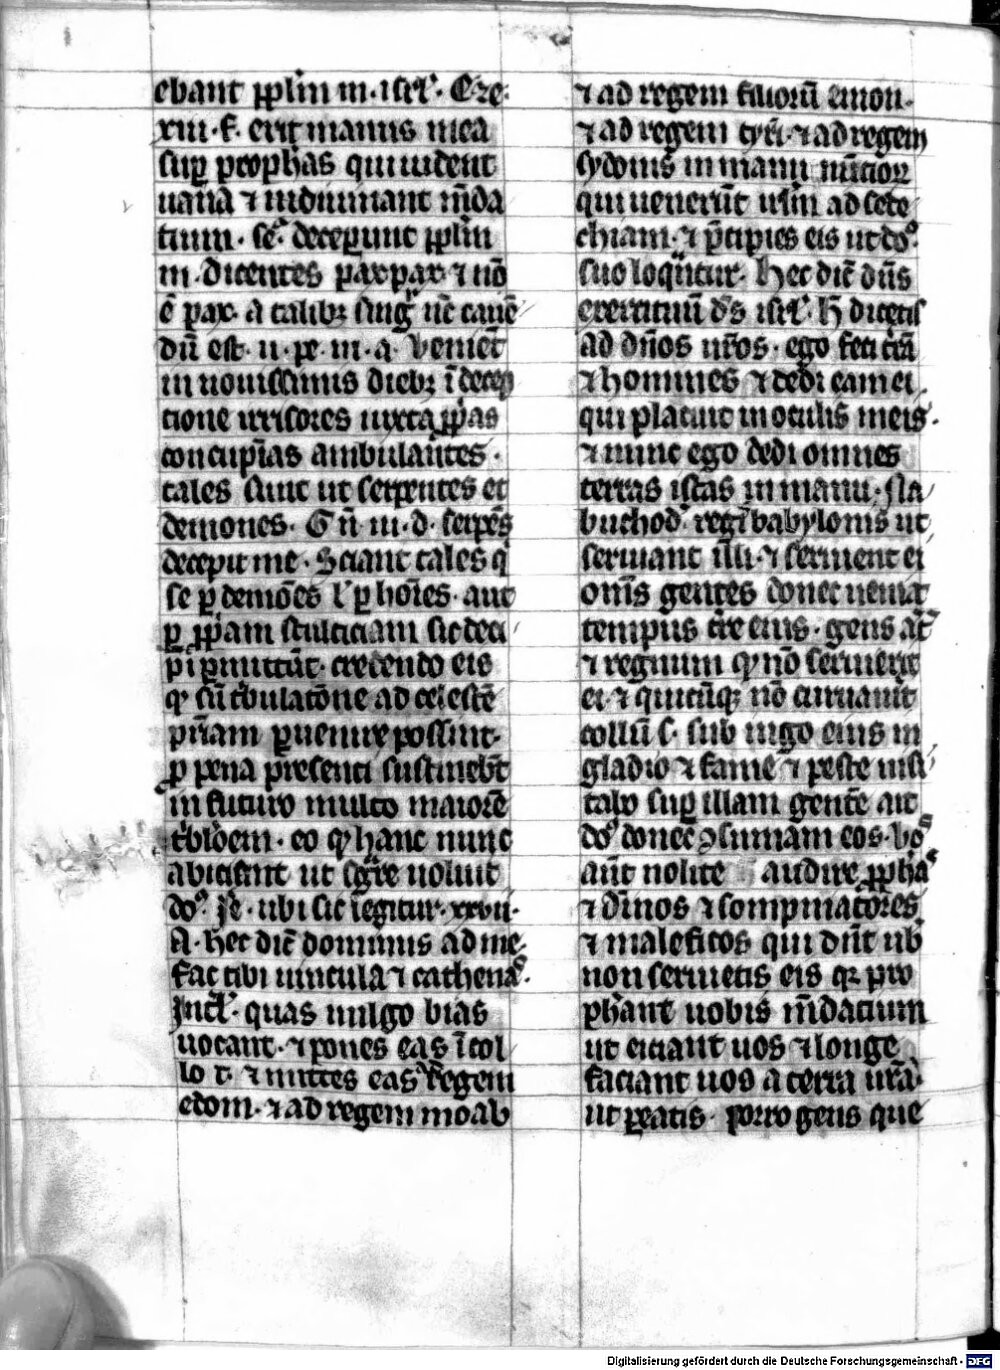 ebant ppl̄m m. isrl̓. Eze.
xiii. f. erit manus mea
sup̱ prophās qui uident
uana ⁊ indiuinant m̄da
tium. se. deceperunt ppl̄m
m. dicentes pax pax ⁊ nō
ē pax. a talibꝫ nc̄ cauē
dū est. ii. pe. iii. a. veniēt
in nouissimis diebꝫ ī decep
tione irrisores iuxta pp̱as
concupīas ambulantes.
tales sunt ut serpentes et
demones. G n̄ iii. d. serpēs
decepit me. Sciant tales q̓
se ꝑ demōes l̓ ꝑ hōies. aut
ꝑ pp̱am stulticiam sic deci
pi ꝑmittūt. credendo eis
ꝙ sn̄ tbulatōne ad celestē
pr̄iam ꝑuenire possint.
ꝓ pena presenti sustinebt̄
in futuro multo maiorē
tblōem. eo ꝙ hanc nunc
abiciunt ut sḡre noluit
do. Je. ubi sic legitur. xxvii.
A. hec dic̄ dominus ad me.
fac tibi uincula ⁊ cathenas.
quas uulgo bias
uocant. ⁊ pones eas ī col
lo t. ⁊ mittes eas ad regem
edom. ⁊ ad regem moab
⁊ ad regem filiorū amon.
⁊ ad regem tyri. ⁊ ad regem
sydonis in manu nūtioꝝ
qui uenerūt irl̄m ad sede
chiam. ⁊ p̄cipies eis ut do.
suo loquātur. Hec dic̄ dn̄s
exercituū ds̄ isrl̓. H̄ dicetis
ad dn̄os ur̄os. ego feci tr̄ā
⁊ homines ⁊ dedi eam ei
qui placuit in oculis meis.
⁊ nunc ego dedi omnes
terras istas in manu. Na
buchod̓. regis babylonis ut
seruiant illi. ⁊ seruient ei
om̄s gentes donec ueniat
tempus tr̄e eius. gens at̄
⁊ regnum ꝙ nō seruierit
ei. ⁊ quicūqꝫ nō curuauit
collū s. sub iugo eius in
gladio ⁊ fame ⁊ peste uisi
tabo sup̱ illam gentē ait
do. donec ꝯsumam eos. vos
aūt nolite audire pp̱has
⁊ diuinos ⁊ sompniatores
⁊ maleficos qui dn̄t uob
non seruietis eis qꝛ pro
phant̄ uobis m̄dacium
ut eiciant uos ⁊ longe
faciant uos a terra ur̄a.
ut ꝑeatis. porro gens que
Digitalisierung gefördert durch die Deutsche Forschungsgemeinschaft - DFG